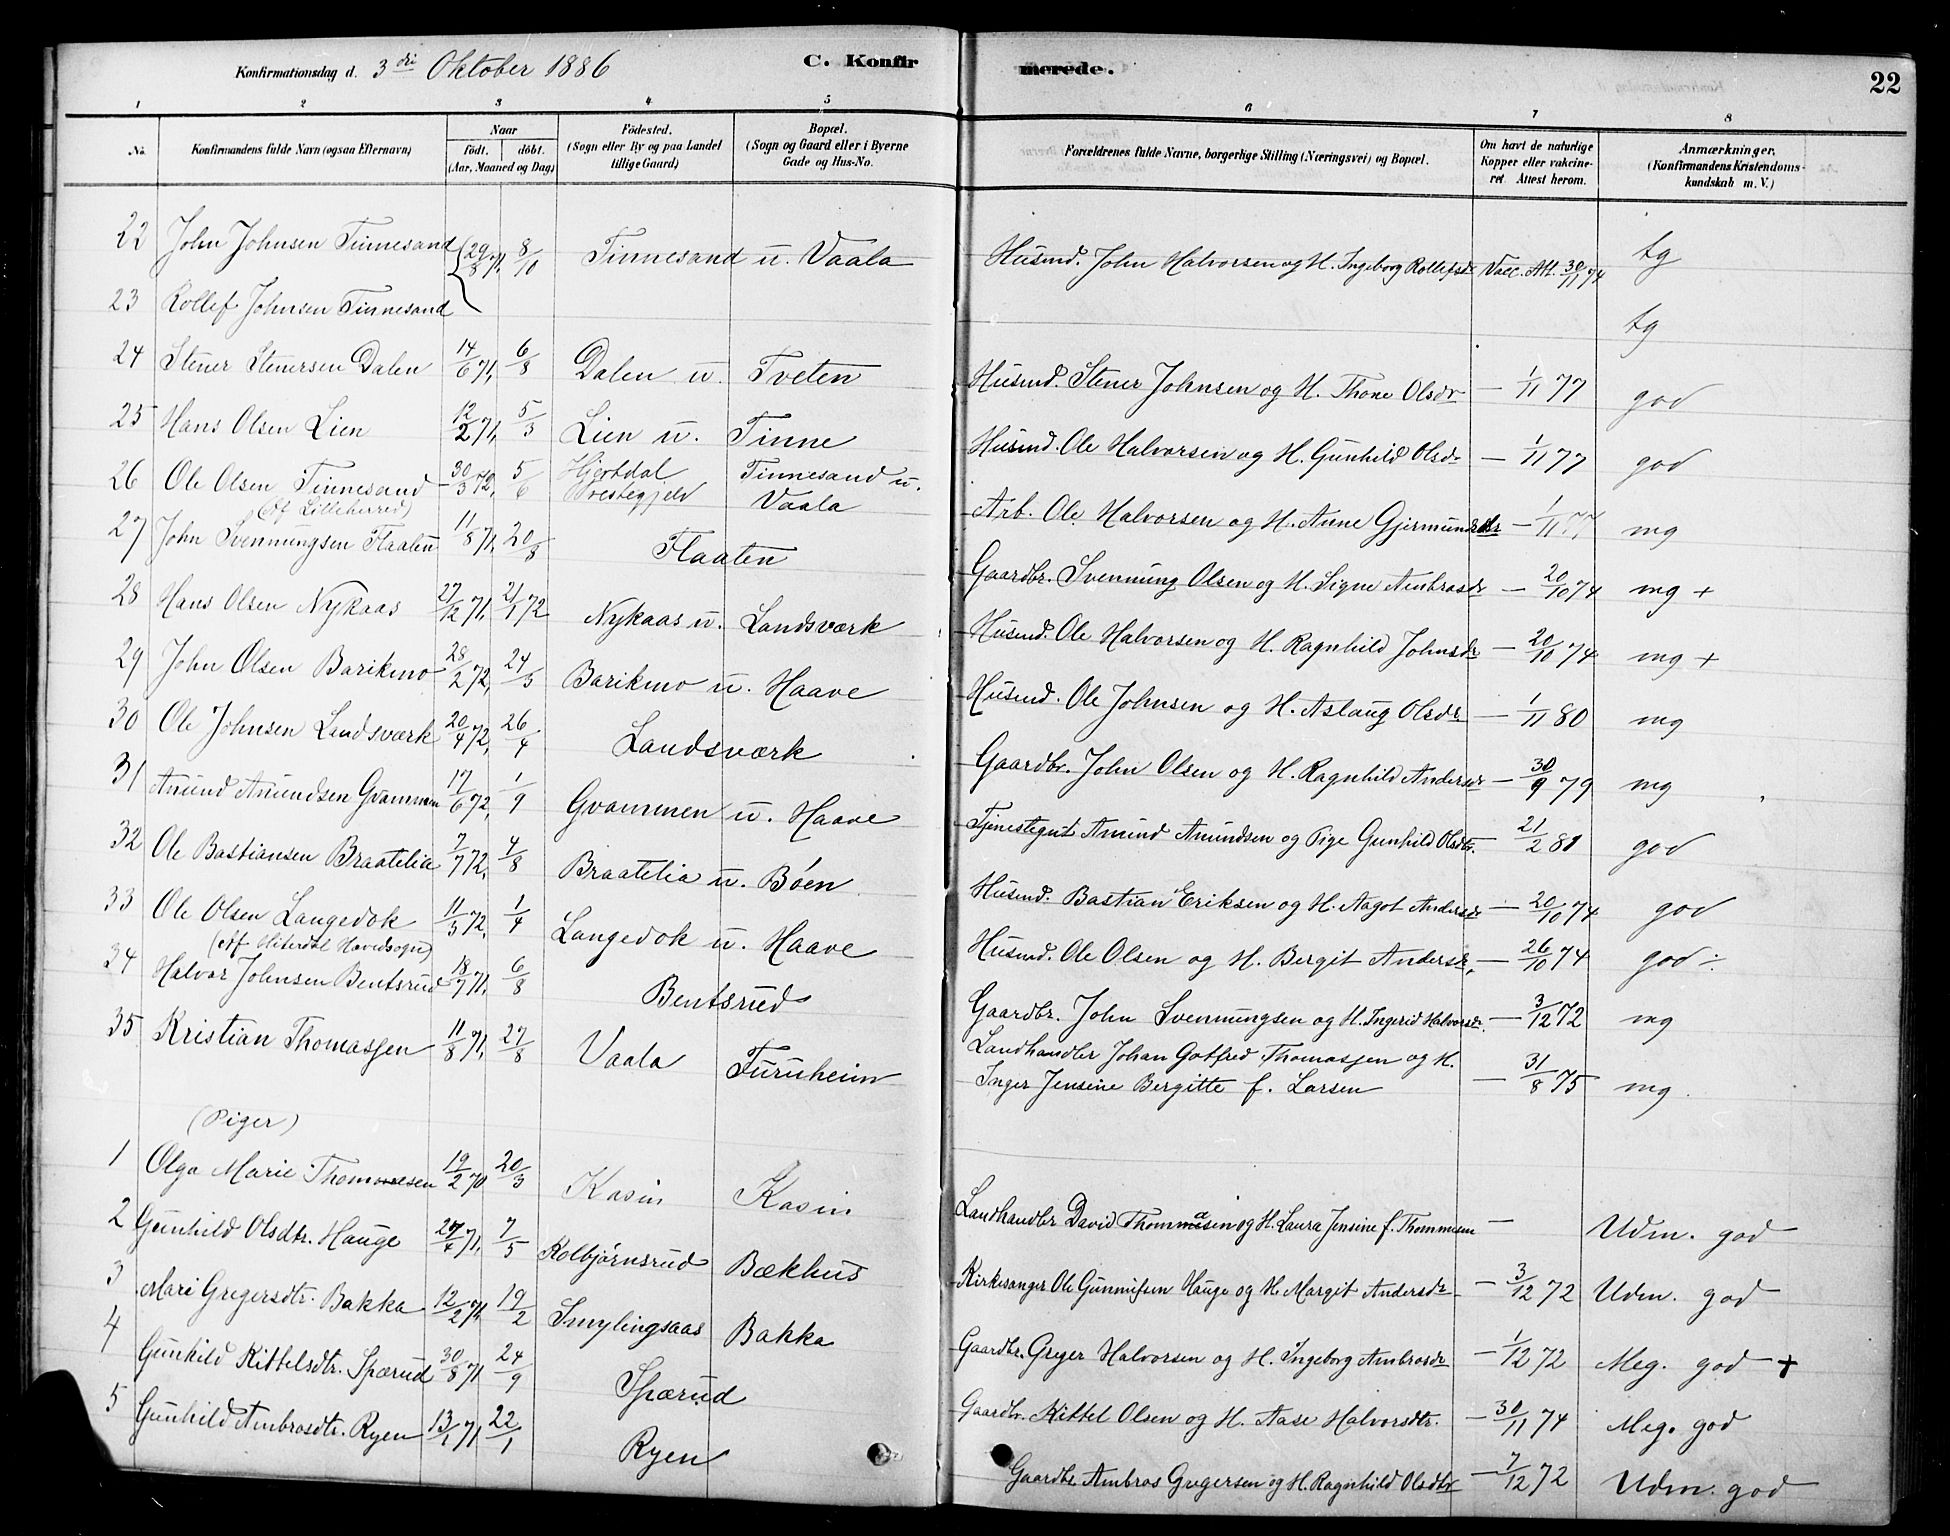 Konfirmationsdag d. 3die Oktober 1886 C. Konfir merede. 22
1 2 3 4 5 6 7 8
No. Konfirmandens fulde Navn (ogsaa Efternavn) Naar födt. döbt. (Aar, Maaned og Dag) Födested. (Sogn eller By og paa Landet tillige Gaard) Bopæl. (Sogn og Gaard eller i Byerne Gade og Hus-No. Forældrenes fulde Navne, borgerlige Stilling (Næringsvei) og Bopæl. Om havt de naturlige Kopper eller vakcineret. Attest herom. Anmærkninger. (Konfirmandens Kristendomskundskab m. V.)
22 John Johnsen Tinnesand 29/8 71, 8/10 Tinnesand u. Vaala Husmd. John Halvorsen og H. Ingeborg Rollefsdr Vacc. Att. 30/11 74 tg
23 Rollef Johnsen Tinnesand tg
24 Stener Stenersen Dalen 14/6 71, 6/8 Dalen u. Tveten Husmd. Stener Johnsen og H. Thone Olsdr — 1/11 77 god
25 Hans Olsen Lien 12/2 71, 5/3 Lien u. Tinne Husmd. Ole Halvorsen og H. Gunhild Olsdr — 1/11 77 god
26 Ole Olsen Tinnesand 30/3 72, 5/6 Hjertdal Prestegjeld Tinnesand u. Vaala Arb. Ole Halvorsen og H. Anne Gjermundsdr — 1/11 77 mg
(Af Lilleherred)
27 John Svennungsen Flaaten 11/8 71, 20/8 Flaaten Gaardbr. Svennung Olsen og H. Signe Ambrosdr — 20/10 74 mg +
28 Hans Olsen Nykaas 27/12 71, 21/1 72 Nykaas u. Landsværk Husmd. Ole Halvorsen og H. Ragnhild Johnsdr — 20/10 74 mg +
29 John Olsen Barikmo 28/2 72, 24/3 Barikmo u. Haave Husmd. Ole Johnsen og H. Aslaug Olsdr — 1/11 80 mg
30 Ole Johnsen Landsværk 20/4 72, 26/4 Landsværk Gaardbr. John Olsen og H. Ragnhild Andersdr — 30/9 79 mg
31 Amund Amundsen Gvammen 17/6 72, 1/9 Gvammen u. Haave Tjenestegut Amund Amundsen og Pige Gunhild Olsdtr. — 21/2 81 god
32 Ole Bastiansen Braatelia 7/7 72, 4/8 Braatelia u. Böen Husmd. Bastian Eriksen og H. Aagot Andersdr — 20/10 74 god
33 Ole Olsen Langedok 11/3 72, 1/4 Langedok u. Haave Husmd. Ole Olsen og H. Bergit Andersdr. — 26/10 74 god ÷
(Af Hiterdal Hovedsogn)
34 Halvor Johnsen Bentsrud 18/7 71, 6/8 Bentsrud Gaardbr. John Svennungsen og H. Ingerid Halvorsdr. — 3/12 72 mg
35 Kristian Thomasjen 11/8 71, 27/8 Vaala Furuheim Landhandler Johan Gotfred Thomasjen og H.
Inger Jensine Bergitte f. Larsen — 31/8 75 mg
(Piger)
1 Olga Marie Thommesen 19/2 70 20/3 Kasin Kasin Landhandler David Thommasen og H. Laura Jensine f. Thommesen — Udm. god
2 Gunhild Olsdtr. Hauge 27/4 71, 7/5 Kolbjörnsrud Bækhus Kirkesanger Ole Gunnufsen Hauge og H. Margit Andersdr — 3/12 72 Udm. god
3 Mari Gregersdtr. Bakka 12/2 71, 19/2 Smylingsaas Bakka Gaardbr. Greger Halvorsen og H. Ingeborg Ambrosdr — 1/12 72 Meg. god +
4 Gunhild Kittelsdtr. Spærud 30/8 71 24/9 Spærud Gaardbr. Kittel Olsen og H. Aase Halvorsdtr. — 30/11 74 Meg. god
5 Gunhild Ambrosdtr. Ryen 13/1 71 22/1 Ryen Gaardbr. Ambros Gregersen og H. Ragnhild Olsdtr — 7/12 72 Udm. god